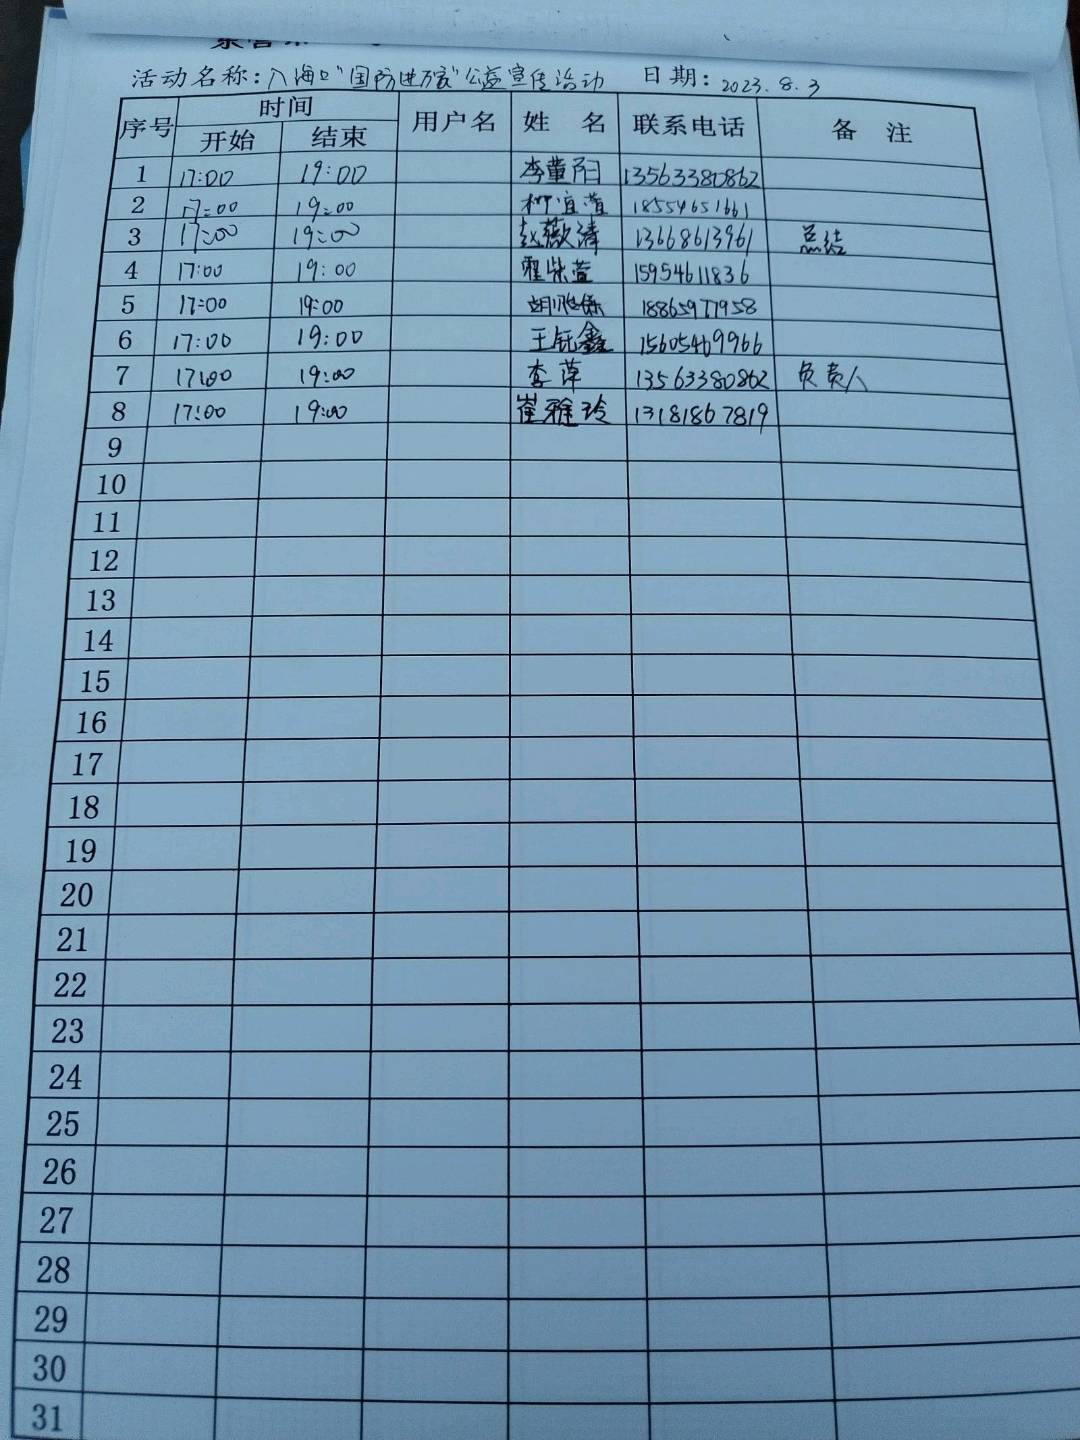 活动名称:入海口"国防进万家"公益宣传活动 日期:2023.8.3
序号 时间 用户名 姓 名 联系电话 备 注
开始 结束
1 17:00 19:00 李董阳 13563380862
2 17:00 19:00 柳谊萱 18554651661
3 17:00 19:00 赵薇清 13668613961 总结
4 17:00 19:00 霍紫萱 15954611836
5 17:00 19:00 18865977958
6 17:00 19:00 王钰鑫 15605469966
7 17:00 19:00 李萍 13563380862 负责人
8 17:00 19:00 崔雅玲 13181867819
9
10
11
12
13
14
15
16
17
18
19
20
21
22
23
24
25
26
27
28
29
30
31